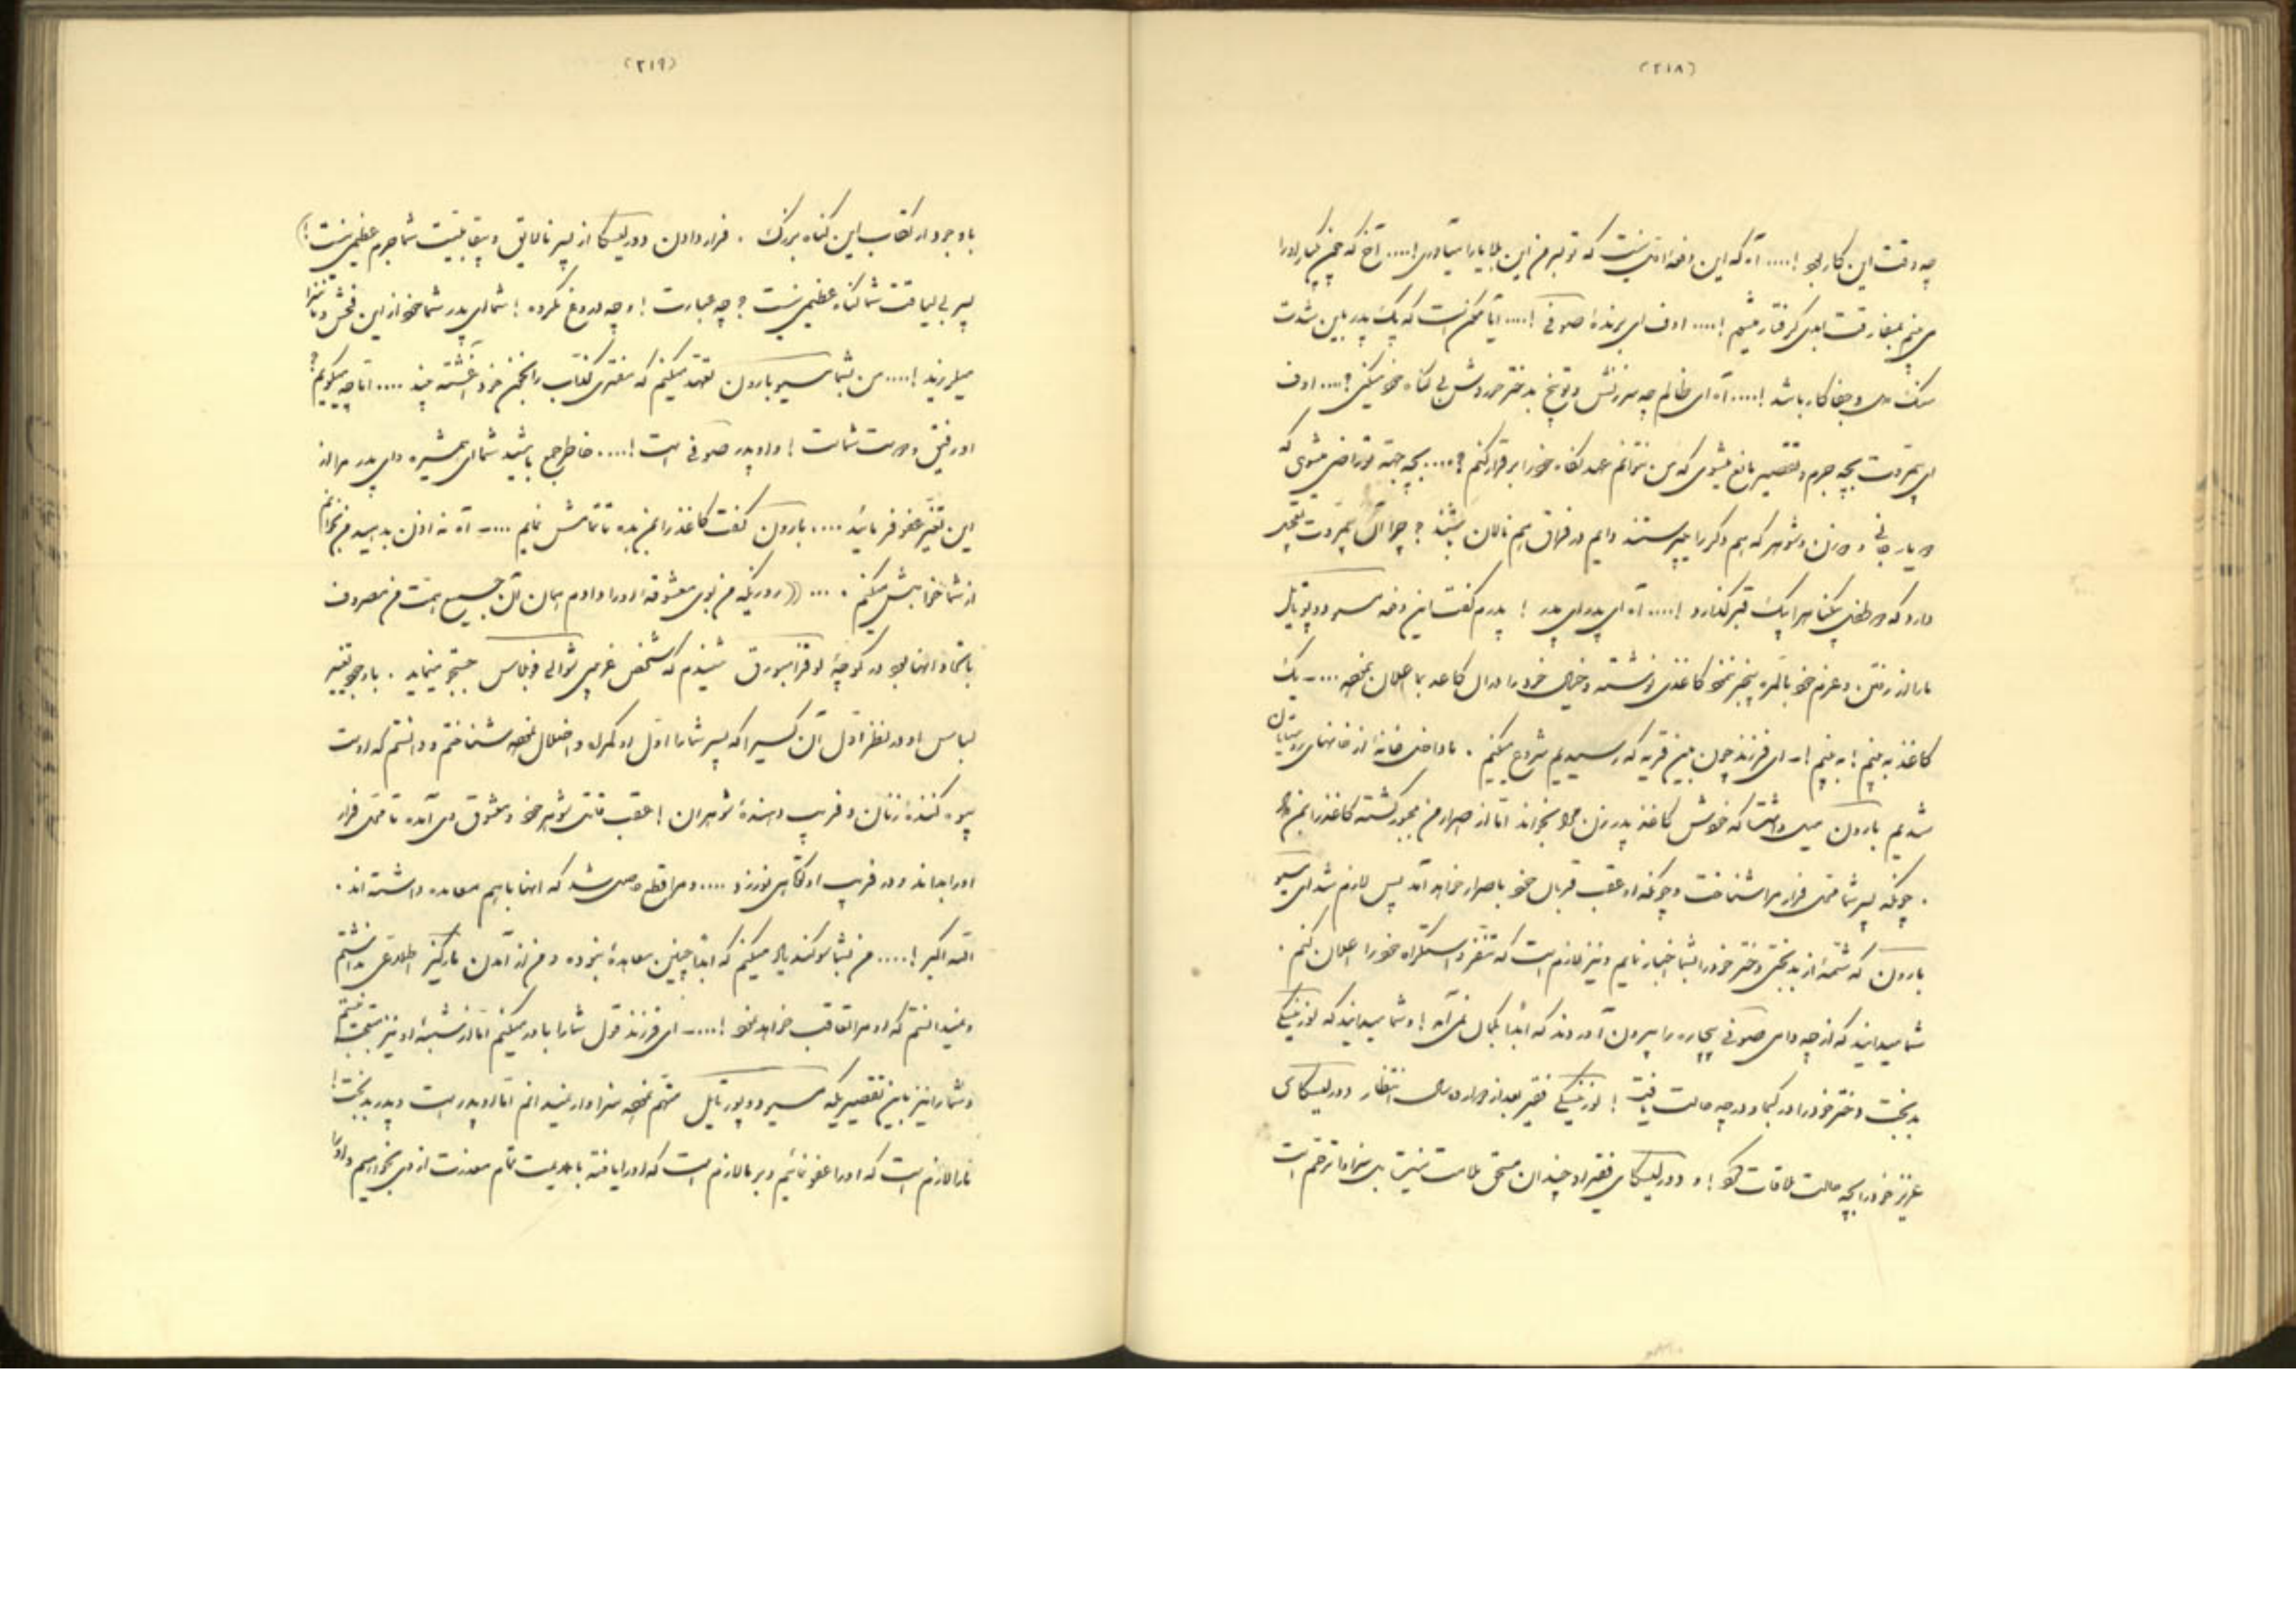 (۲۱۸)
چه وقت این کار بود !.... آه که این دفعه اولی نیست که تو بر سر من این بلایا را میآوری !.... آخ که من
می بینم بمفارقت ابدی گرفتار میشم !.... اوف ای برندهٔ صوفی !.... آیا ممکن است که یک پدر باین شدت
سنگ دل و جفا کار باشد !.... آه ای ظالم چه سرزنش و توبیخ بدختر خود بی گناه خود میکنی ؟.... اوف
ای بیمروت بچه جرم و تقصیر مانع میشوی که من نتوانم عهد نکاح خود را برقرار کنم ؟.... بچه جهة تو راضی میشوی که
دو یار جانی و دو زن و شوهر که هم دیگر را میپرستند دایم در فراق هم نالان باشند ؟ چرا آن بیمروت تعجیل
دارد که دو طفل بیگناه را بیک قبر گذارد !.... آه ای پدر ای پدر ! پدرم گفت این دفعه مسیو دوپورتایل
ما را از رفتن و عزم خود بالمره بیخبر نمود کاغذی نوشته و خیال خود را در آن کاغذ بما اعلان نموده ....ـ یک
کاغذ به بینم ! به بینم !ـ ای فرزند چون باین قریه که رسیدیم شروع میکنم . ما داخل خانهٔ از خانهای روستایان
شدیم بارون میل داشت که خودش کاغذ پدر زن مرا بخواند اما از اصرار من مجبور گشته کاغذ را بمن داد
. چونکه پسر شما محل فرار مرا شناخت و چونکه او عقب قربال خود باصرار خواهد آمد پس لازم شد ای مسیو
بارون که شمهٔ از بدبختی دختر خود را بشما اخبار نمایم و نیز لازم است که تنفر و استکراه خود را اعلان کنم .
شما میدانید که از چه دامی صوفی بیچاره را بیرون آوردند که ابداً بخیال نمی آمد ! و شما میدانید که لوزینسکی
بدبخت دختر خود را در کجا و در چه حالت یافت ! لوزینسکی فقیر بعد از دوازده سال انتظار دورلیسکای
عزیز خود را بچه حالت ملاقات نمود ! و دورلیسکای فقیر او چندان مستحق ملامت نیست بل سزاوار ترحم است
(۲۱۹)
با وجود ارتکاب این گناه بزرگ . فرار دادن دورلیسکا از پسر نالایق و بیقابلیت شما جرم عظیمی نیست !)
پسر بی لیاقت شما گناه عظیمی نیست ؟ چه عبارت ! و چه دروغ نکرده ! شما ای پدر شما خود از این فحش و ناسزا
میلرزید !.... من بشما مسیو بارون تعهد میکنم که مفتری کذاب را بخون خود آغشته بیند .... اما چه میگویم ؟
او رفیق و دوست شماست ! و او پدر صوفی است !.... خاطر جمع باشید شما ای همشیره و ای پدر مرا از
این تغیر عفو فرمائید .... بارون گفت کاغذ را بمن بده تا تمامش نمایم ....ـ آه نه اذن بدهید من بخوانم
از شما خواهش میکنم . ... ((روزیکه من بوی معشوقهٔ او را دادم همان آن جمیع همت من مصروف
باتحاد آنها بود در کوچهٔ لوقزامبورق شنیدم که شخص غریبی شوالی فوبلاس جستجو مینماید . با وجود تغییر
لباس او در نظر اول آن کسی را که پسر شما را اول او گمراه و اضلال نموده شناختم و دانستم که اوست
بیوه کنندهٔ زنان و فریب دهندهٔ شوهران ! عقب قاتل شوهر خود و معشوق وی آمده تا محل فرار
او را بداند و در فریب او نکاهل نورزد .... و مرا قطع حاصل شد که آنها با هم معاهده داشته اند .
الله اکبر !.... من بشما سوگند یاد میکنم که ابداً چنین معاهدهٔ نبوده و من از آمدن مارکیز اطلاعی نداشتم
و نمیدانستم که او مرا تعاقب خواهد نمود !....ـ ای فرزند قول شما را باور میکنم اما از شبههٔ او نیز متعجب نیستم
و شما را نیز باین تقصیر یکه مسیو دوپورتایل متهم نموده سزاوار نمیدانم اما او پدر است و پدر بدبخت !
ما را لازم است که او را عفو نمائیم و بر ما لازم است که او را یافته با ادب تمام معذرت از وی بخواهیم و او را